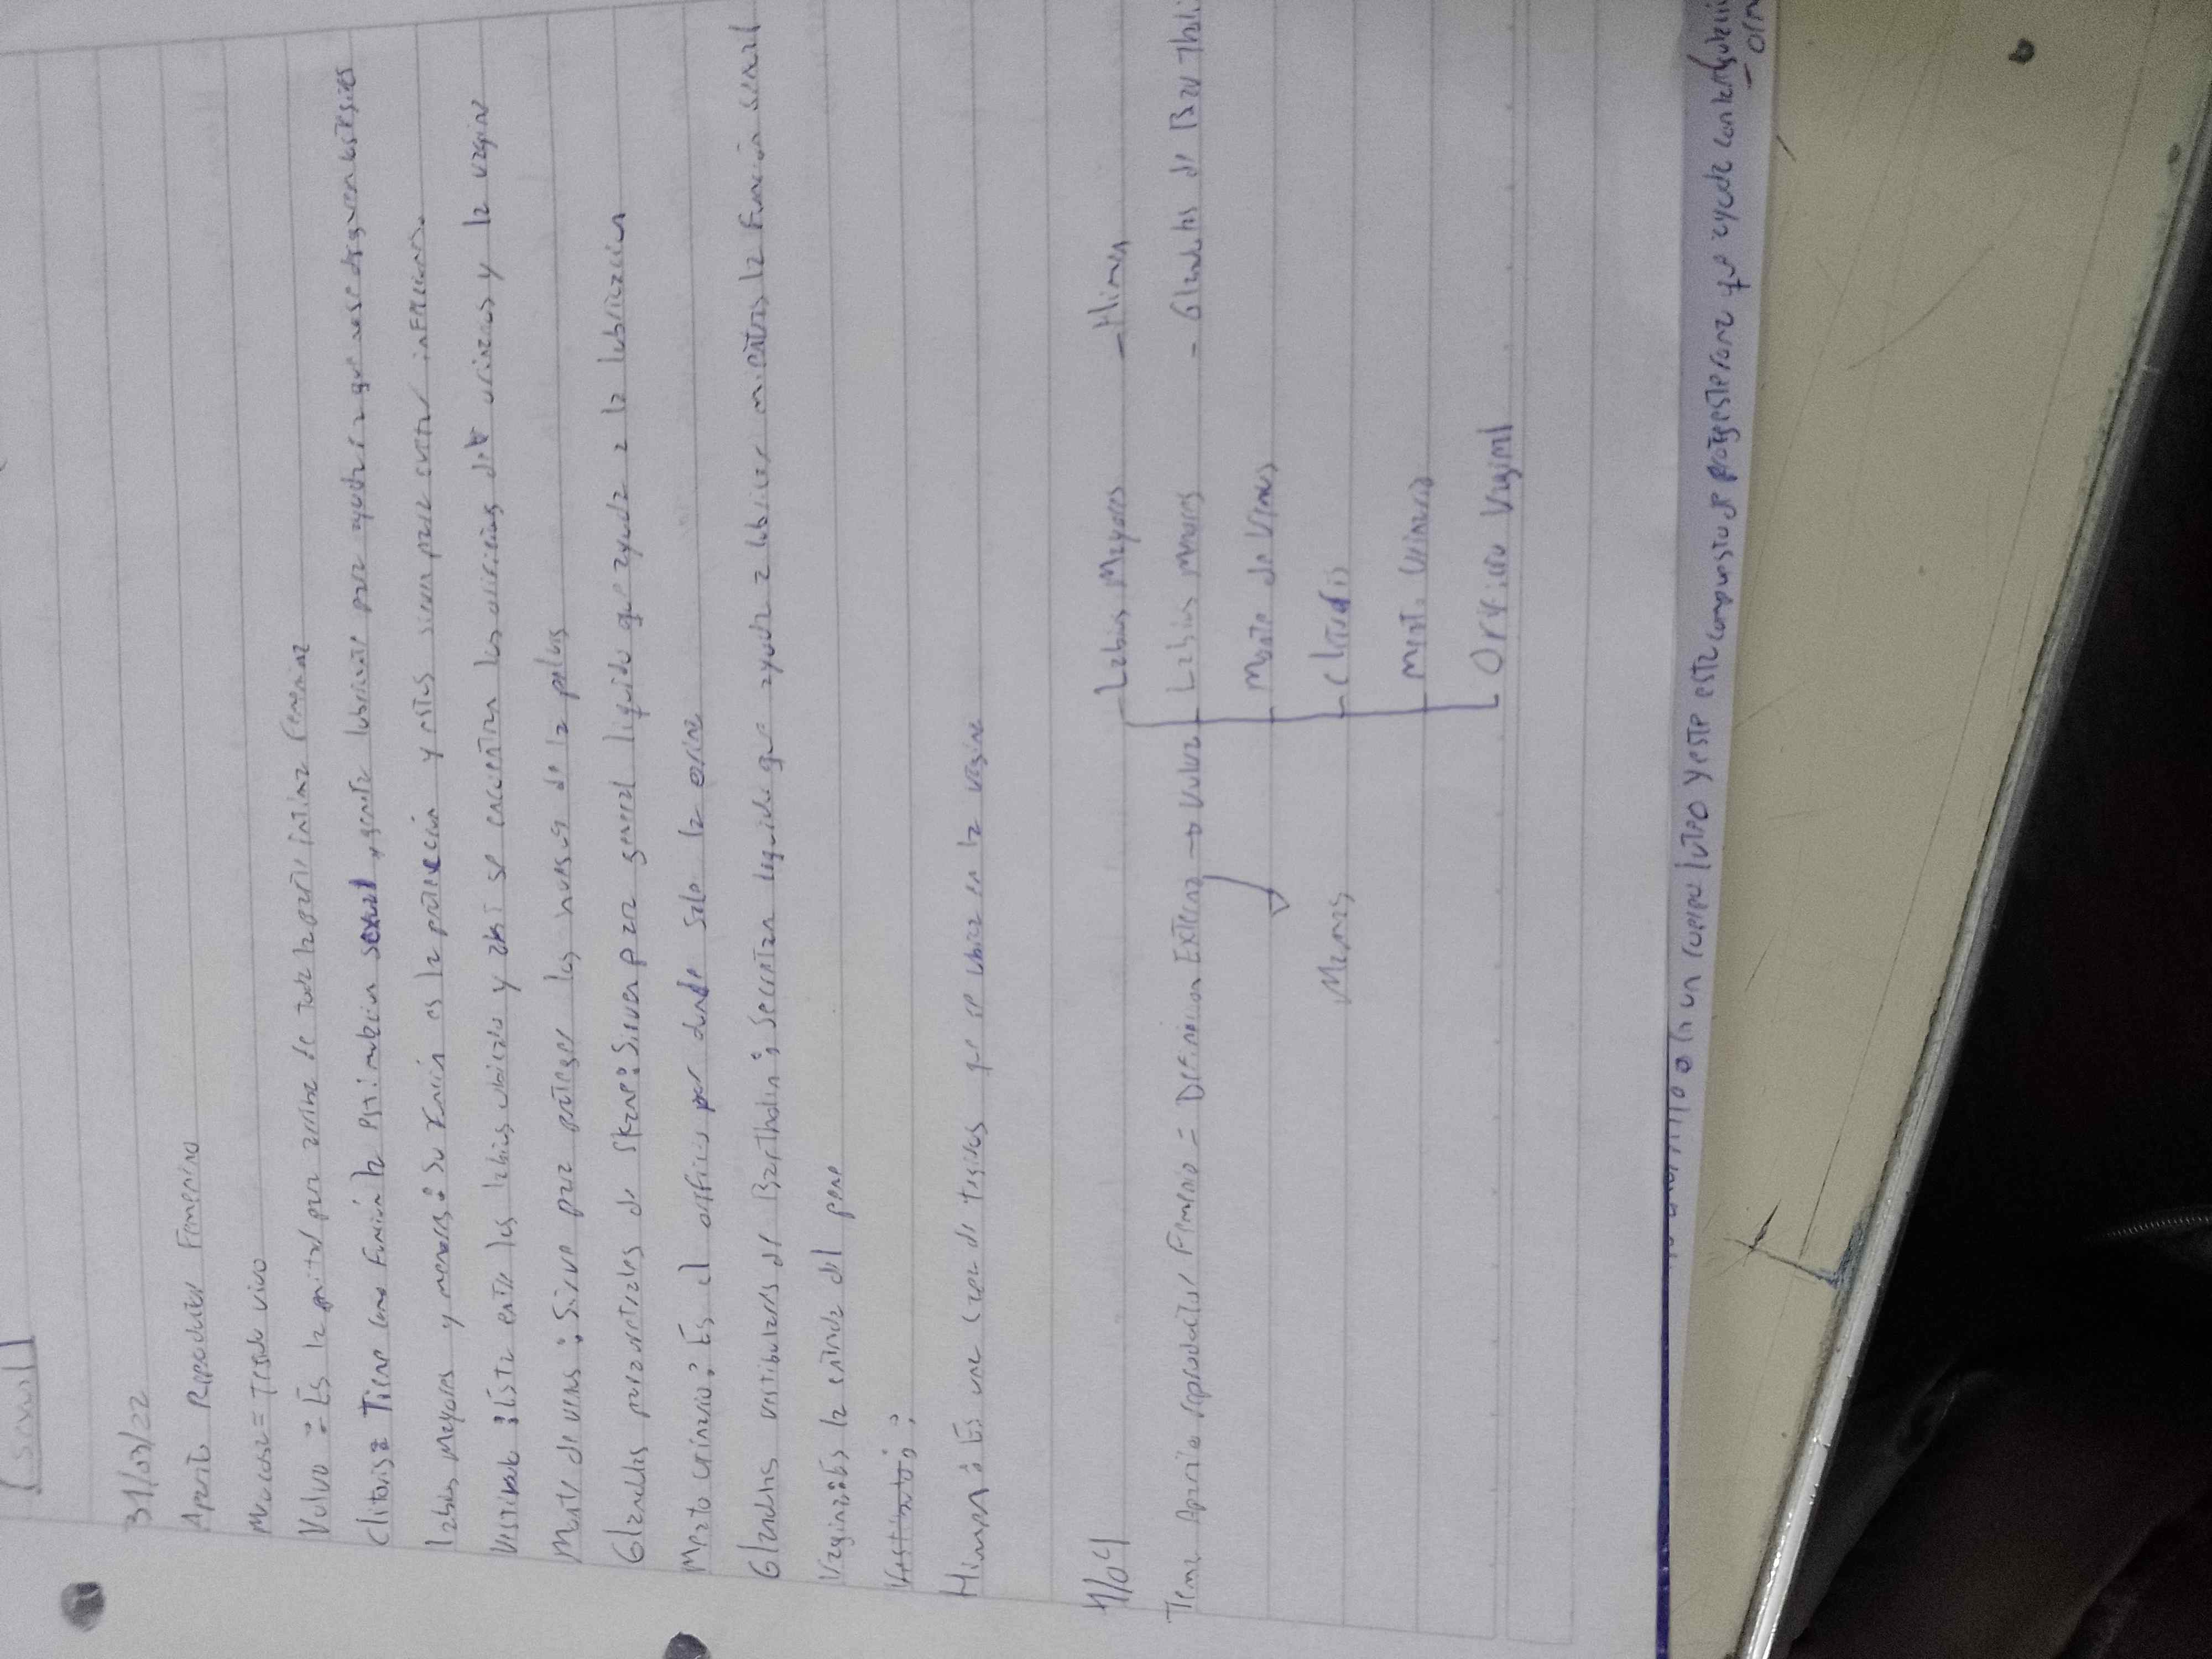 31/03/22
Aparto Reproductor Femenino
Mucosa = Tejido vivo
Vulva : Es la mitad por arriba de toda la parte intima femenina
Clitoris: Tiene como función la estimulación sexual, genera lubricante para ayudar a que no se
Labios Mayores y menores : Su función es la protección y estos sirven para evitar infecciones.
Vestibulo : Esta entre los labios, ubicado y aki se encuentran los orificios del urinario y la vagina
Monte de venus : Sirve para proteger los huesos de la pelvis
Glandulas parauretrales de Skene : Sirven para general liquido que ayuda a la lubricación
Meato urinario : Es el orificio por donde sale la orina
Glandulas vestibulares de Bartholin ; Secretan liquido que ayuda a lubricar mientras la función sexual
Vagina : Es la entrada del pene
Vestibulo :
Himen : Es una capa de tejidos que se ubica en la vagina
4/04
- Labios Mayores - Himen
Tema Aparato reproductor Femenio = Definicion Externa → Vulva - Labios menores - Glandulas de Barthol
Monte de Venus
Mamas - Clitoris
Meat. Urinario
Orificio Vaginal
en un cuerpo luteo y este esta compuesto de progesterona que ayuda con